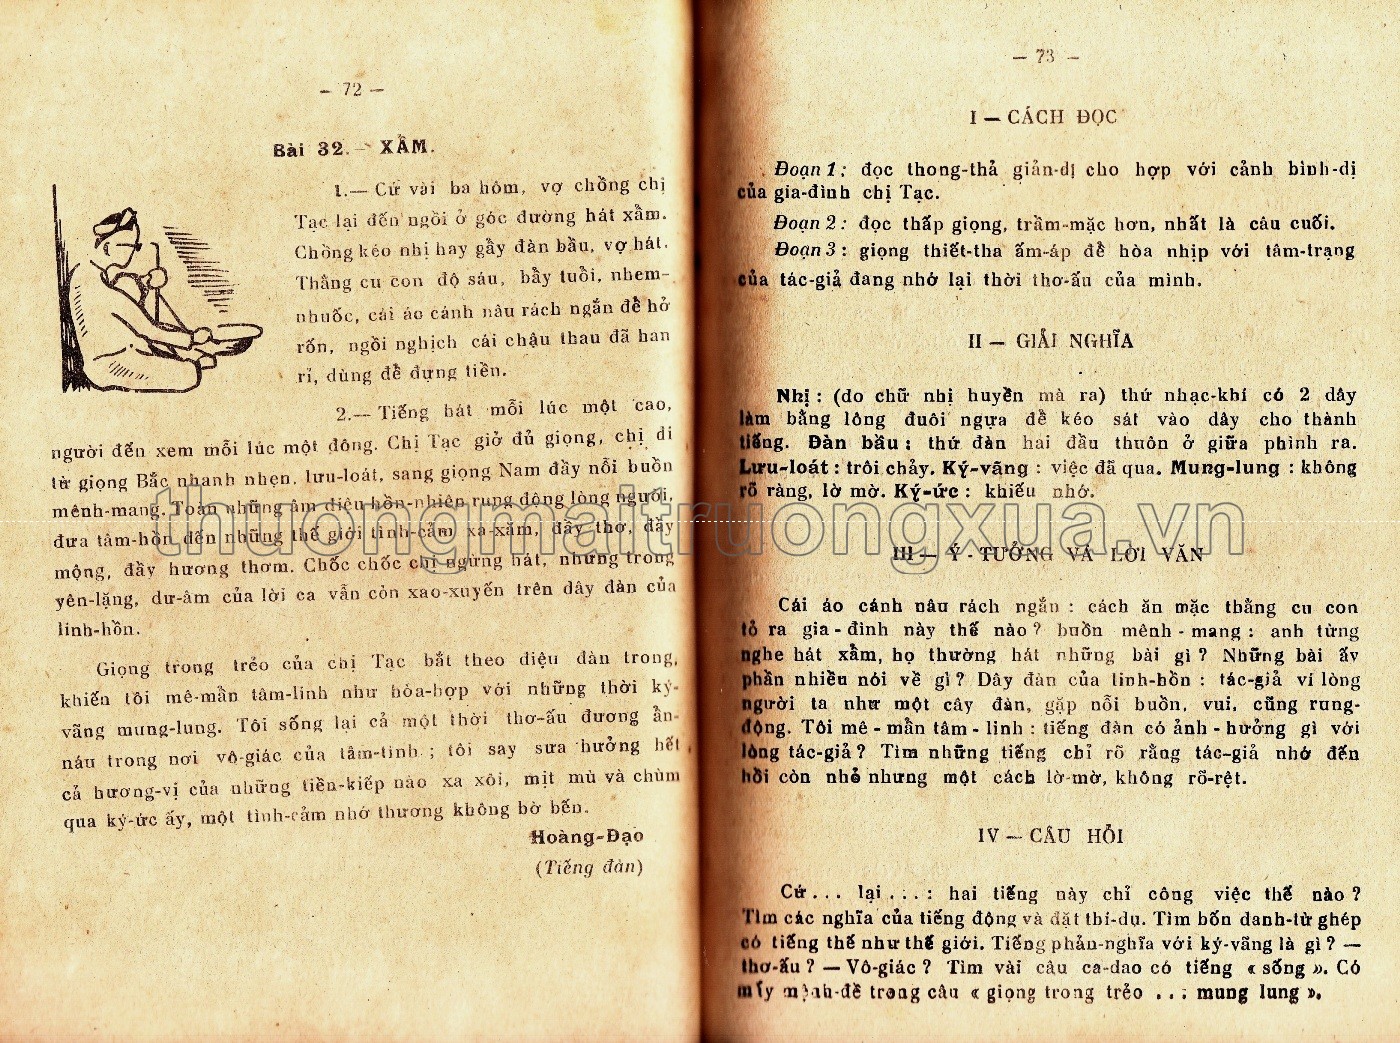 – 72 –
Bài 32. – XẨM.
1.— Cứ vài ba hôm, vợ chồng chị
Tạc lại đến ngồi ở góc đường hát xẩm.
Chồng kéo nhị hay gẩy đàn bầu, vợ hát.
Thằng cu con độ sáu, bẩy tuổi, nhem-
nhuốc, cái áo cánh nâu rách ngắn để hở
rốn, ngồi nghịch cái chậu thau đã han
rỉ, dùng để đựng tiền.
2.— Tiếng hát mỗi lúc một cao,
người đến xem mỗi lúc một đông. Chị Tạc giở đủ giọng, chị đi
từ giọng Bắc nhanh nhẹn, lưu-loát, sang giọng Nam đầy nỗi buồn
mênh-mang. Toàn những âm điệu hồn-nhiên rung động lòng người,
đưa tâm-hồn đến những thế giới tình-cảm xa-xăm, đầy thơ, đầy
mộng, đầy hương thơm. Chốc chốc chị ngừng hát, nhưng trong
yên-lặng, dư-âm của lời ca vẫn còn xao-xuyến trên dây đàn của
linh-hồn.
Giọng trong trẻo của chị Tạc bắt theo điệu đàn trong,
khiến tôi mê-mẩn tâm-linh như hòa-hợp với những thời ký-
vãng mung-lung. Tôi sống lại cả một thời thơ-ấu đương ẩn-
náu trong nơi vô-giác của tâm-tình ; tôi say sưa hưởng hết
cả hương-vị của những tiền-kiếp nào xa xôi, mịt mù và chùm
qua ký-ức ấy, một tình-cảm nhớ thương không bờ bến.
Hoàng-Đạo
(Tiếng đàn)
– 73 –
I — CÁCH ĐỌC
Đoạn 1 : đọc thong-thả giản-dị cho hợp với cảnh bình-dị
của gia-đình chị Tạc.
Đoạn 2 : đọc thấp giọng, trầm-mặc hơn, nhất là câu cuối.
Đoạn 3 : giọng thiết-tha ấm-áp để hòa nhịp với tâm-trạng
của tác-giả đang nhớ lại thời thơ-ấu của mình.
II — GIẢI NGHĨA
Nhị : (do chữ nhị huyền mà ra) thứ nhạc-khí có 2 dây
làm bằng lông đuôi ngựa để kéo sát vào dây cho thành
tiếng. Đàn bầu : thứ đàn hai đầu thuôn ở giữa phình ra.
Lưu-loát : trôi chảy. Ký-vãng : việc đã qua. Mung-lung : không
rõ ràng, lờ mờ. Ký-ức : khiếu nhớ.
thuongmaitruongxua.vn
III — Ý - TƯỞNG VÀ LỜI VĂN
Cái áo cánh nâu rách ngắn : cách ăn mặc thằng cu con
tỏ ra gia - đình này thế nào ? buồn mênh - mang : anh từng
nghe hát xẩm, họ thường hát những bài gì ? Những bài ấy
phần nhiều nói về gì ? Dây đàn của linh-hồn : tác-giả ví lòng
người ta như một cây đàn, gặp nỗi buồn, vui, cũng rung-
động. Tôi mê - mẩn tâm - linh : tiếng đàn có ảnh - hưởng gì với
lòng tác-giả ? Tìm những tiếng chỉ rõ rằng tác-giả nhớ đến
hồi còn nhỏ nhưng một cách lờ-mờ, không rõ-rệt.
IV — CÂU HỎI
Cứ . . . lại . . . : hai tiếng này chỉ công việc thế nào ?
Tìm các nghĩa của tiếng động và đặt thí-dụ. Tìm bốn danh-từ ghép
có tiếng thế như thế giới. Tiếng phản-nghĩa với ký-vãng là gì ? —
thơ-ấu ? — Vô-giác ? Tìm vài câu ca-dao có tiếng « sống ». Có
mấy mệnh-đề trong câu « giọng trong trẻo . . . mung lung ».